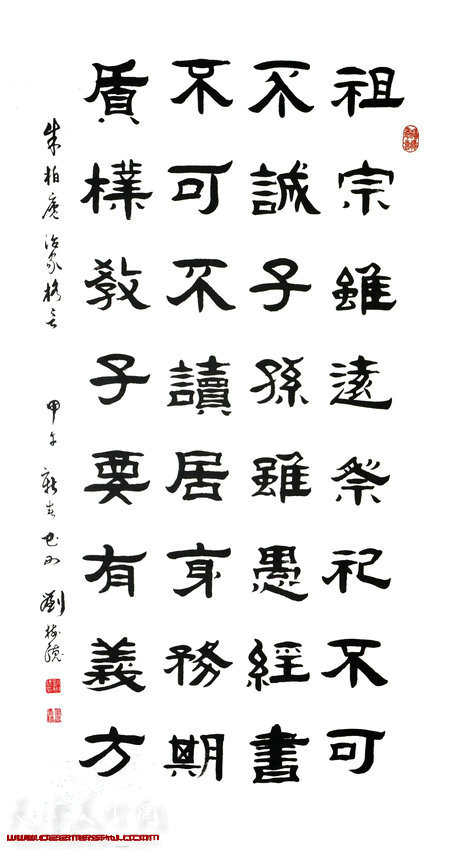 祖宗雖遠祭祀不可
不誠子孫雖愚經書
不可不讀居身務期
質樸教子要有義方
朱柏廬治家格言
甲午新春 劉